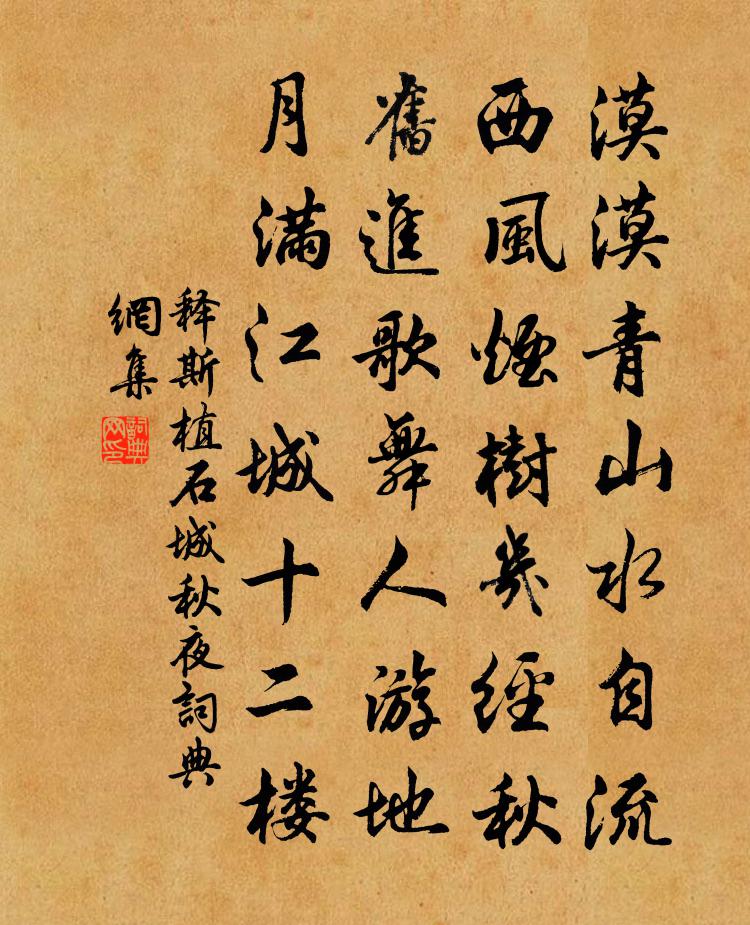 漠漠青山水自流
西風煙樹幾經秋
舊進歌舞人游地
月滿江城十二楼
释斯植石城秋夜詞典
網集
詞典
网印